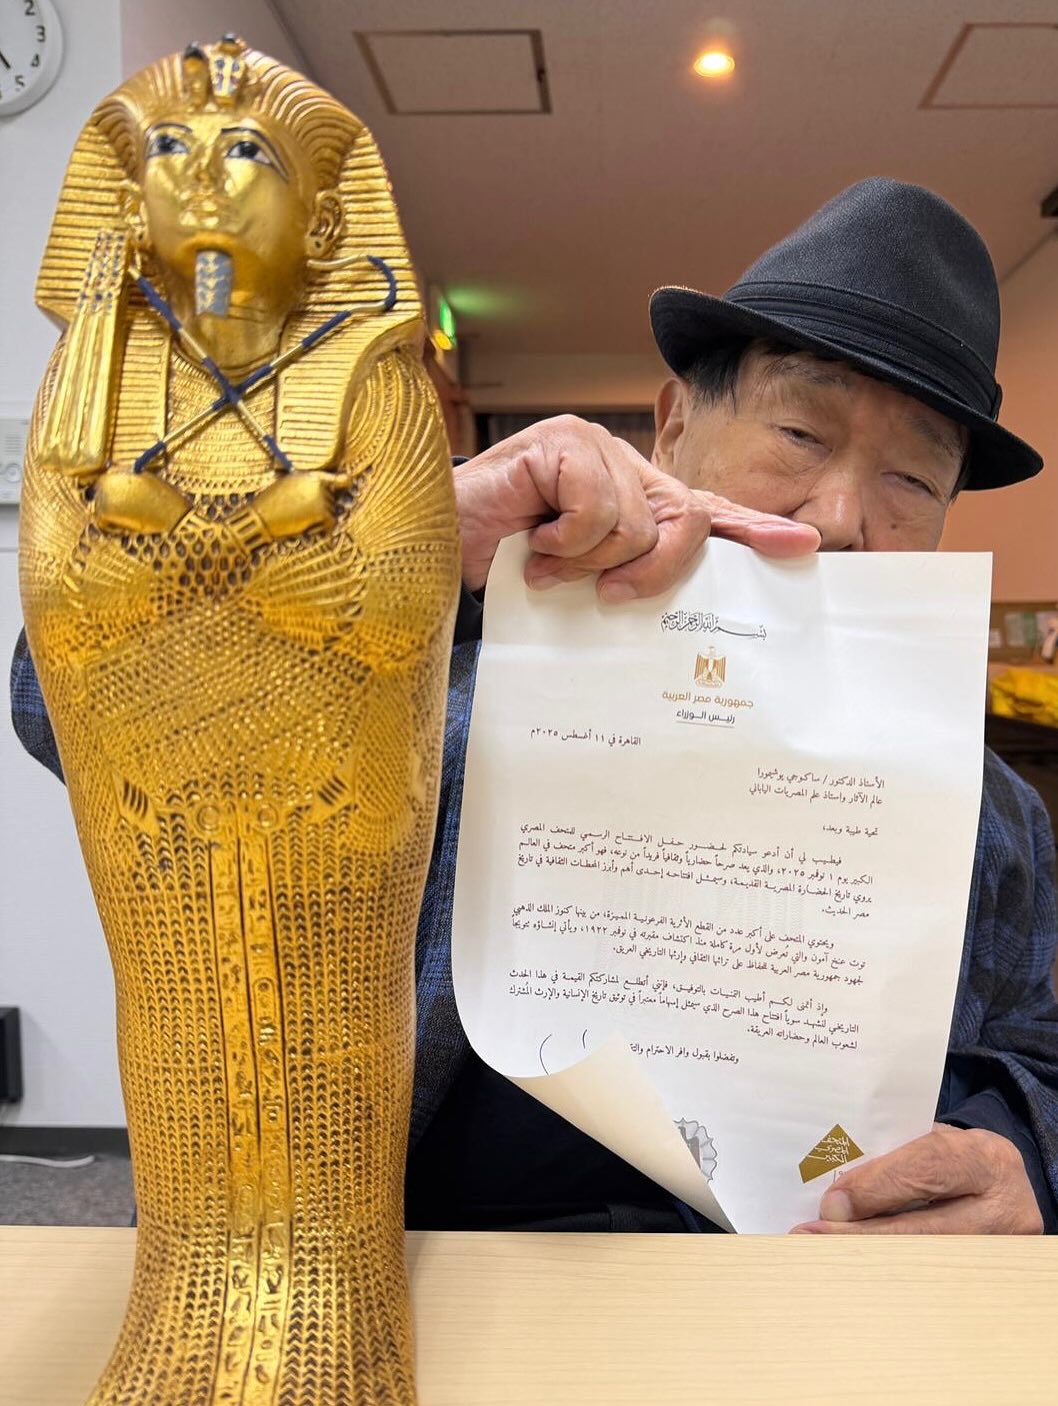 2
3
4
5
بسم الله الرحمن الرحيم
جمهورية مصر العربية
رئيس الوزراء
القاهرة في ١١ أغسطس ٢٠٢٥م
الأستاذ الدكتور / ساكوجي يوشيمورا
عالم الآثار واستاذ علم المصريات الياباني
تحية طيبة وبعد،
فيطيب لي أن أدعو سيادتكم لحضور حفل الافتتاح الرسمي للمتحف المصري
الكبير يوم ١ نوفمبر ٢٠٢٥، والذي يعد صرحاً حضارياً وثقافياً فريداً من نوعه، فهو أكبر متحف في العالم
يروي تاريخ الحضارة المصرية القديمة، وسيمثل افتتاحه إحدى أهم وأبرز المحطات الثقافية في تاريخ
مصر الحديث.
ويحتوي المتحف على أكبر عدد من القطع الأثرية الفرعونية المميزة، من بينها كنوز الملك الذهبي
توت عنخ آمون والتي تُعرض لأول مرة كاملة منذ اكتشاف مقبرته في نوفمبر ١٩٢٢، ويأتي إنشاؤه تتويجاً
لجهود جمهورية مصر العربية للحفاظ على تراثها الثقافي وإرثها التاريخي العريق.
وإذ أتمنى لكم أطيب التمنيات بالتوفيق، فإنني أتطلع لمشاركتكم القيمة في هذا الحدث
التاريخي لنشهد سوياً افتتاح هذا الصرح الذي سيمثل إسهاماً معتبراً في توثيق تاريخ الإنسانية والإرث المُشترك
لشعوب العالم وحضاراته العريقة.
وتفضلوا بقبول وافر الاحترام
المتحف
المصري
الكبير